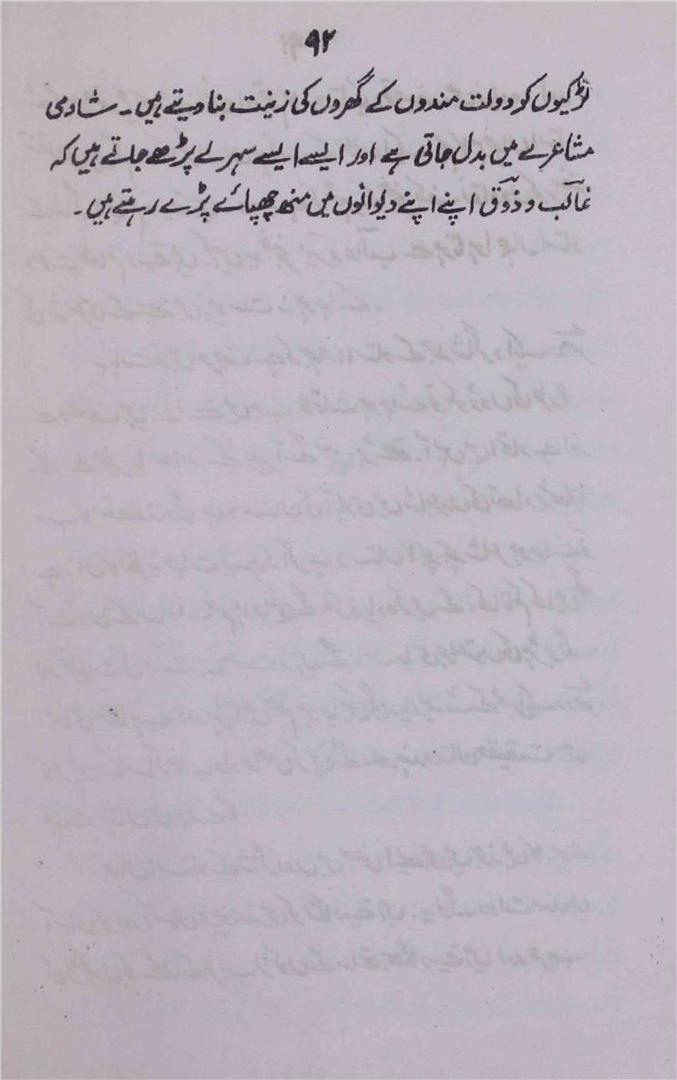 ۹۲
لڑکیوں کو دولت مندوں کے گھروں کی زینت بنا دیتے ہیں۔ شادی
مشاعرے میں بدل جاتی ہے اور ایسے ایسے سہرے پڑھے جاتے ہیں کہ
غالبؔ و ذوقؔ اپنے اپنے دیوانوں میں منھ چھپائے پڑے رہتے ہیں۔